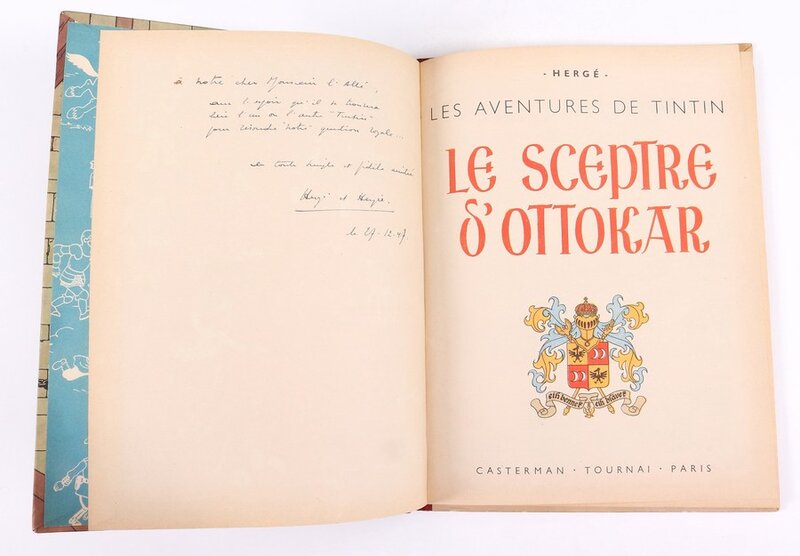 à notre cher Monsieur l'Abbé,
avec l'espoir qu'il se trouvera
bien l'un ou l'autre "Tintin"
pour résoudre notre question royale...
en toute simple et fidèle amitié
Hergé et
le 27-12-47
- HERGÉ -
LES AVENTURES DE TINTIN
LE SCEPTRE
D'OTTOKAR
eih bennek eih blävek
CASTERMAN · TOURNAI · PARIS